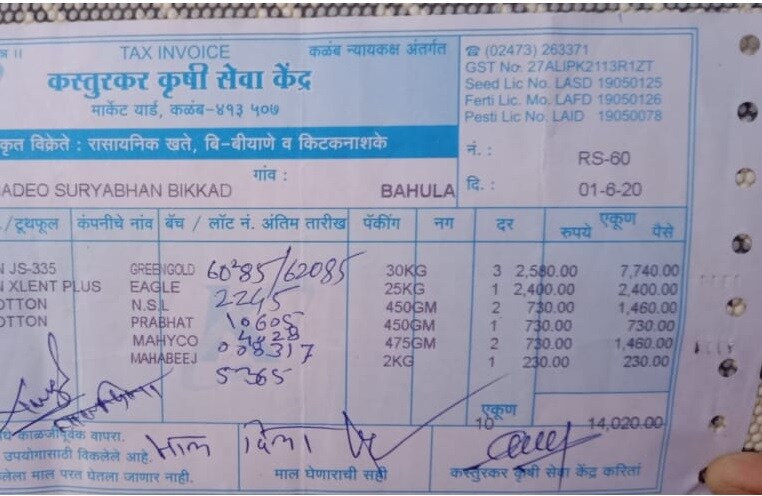 TAX INVOICE कळंब न्यायकक्ष अंतर्गत ☎ (02473) 263371
GST No: 27ALIPK2113R1ZT
कस्तुरकर कृषी सेवा केंद्र Seed Lic No. LASD 19050125
Ferti Lic. Mo. LAFD 19050126
मार्केट यार्ड, कळंब-४१३ ५०७ Pesti Lic No. LAID 19050078
कृत विक्रेते : रासायनिक खते, बि-बीयाणे व किटकनाशके नं. : RS-60
गांव :
ADEO SURYABHAN BIKKAD BAHULA दि. : 01-6-20
./टूथफूल कंपनीचे नांव बॅच / लॉट नं. अंतिम तारीख पॅकींग नग दर एकूण
रुपये पैसे
N JS-335 GREENGOLD 60285/62085 30KG 3 2,580.00 7,740.00
N XLENT PLUS EAGLE 2245 25KG 1 2,400.00 2,400.00
OTTON N.S.L 450GM 2 730.00 1,460.00
OTTON PRABHAT 10605 450GM 1 730.00 730.00
MAHYCO 4828 475GM 2 730.00 1,460.00
MAHABEEJ 008317 2KG 1 230.00 230.00
5365
एकूण
10 14,020.00
काळजीपूर्वक वापरा.
उपयोगासाठी विकलेले आहे. माल दिला
लेला माल परत घेतला जाणार नाही. माल घेणाराची सही कस्तुरकर कृषी सेवा केंद्र करितां